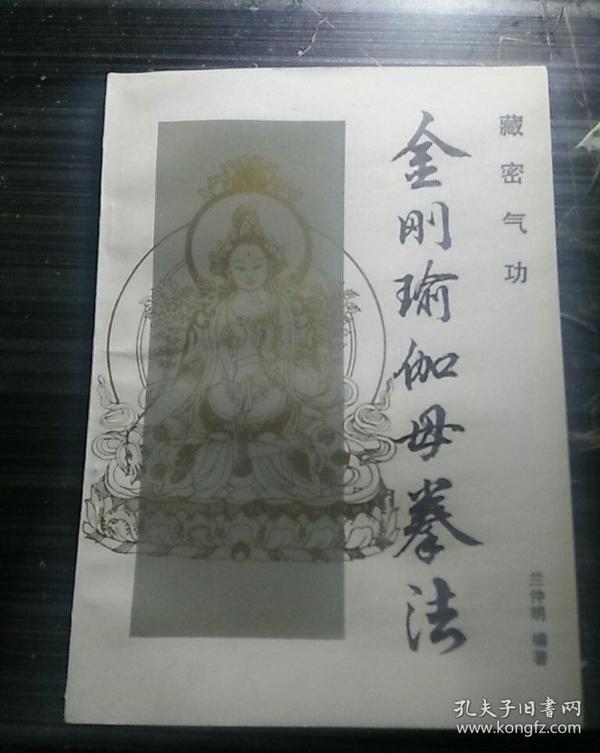 藏密气功
金刚瑜伽母拳法
兰仲明 编著
孔夫子旧书网
www.kongfz.com